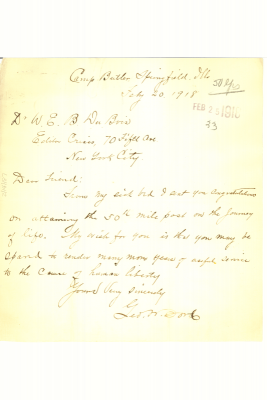 Camp Butler Springfield, Ills
Feby 20, 1918
FEB 23 1918
23
Dr W. E. B. Du Bois
Editor Crisis, 70 Fifth Ave
New York City
Dear Friend:
From my sick bed I send you Congratulations
on attaining the 50th mile post on the journey
of life. My wish for you is that you may be
spared to render many more years of useful service
to the Cause of human liberty
Yours very sincerely
Geo. W. Ford